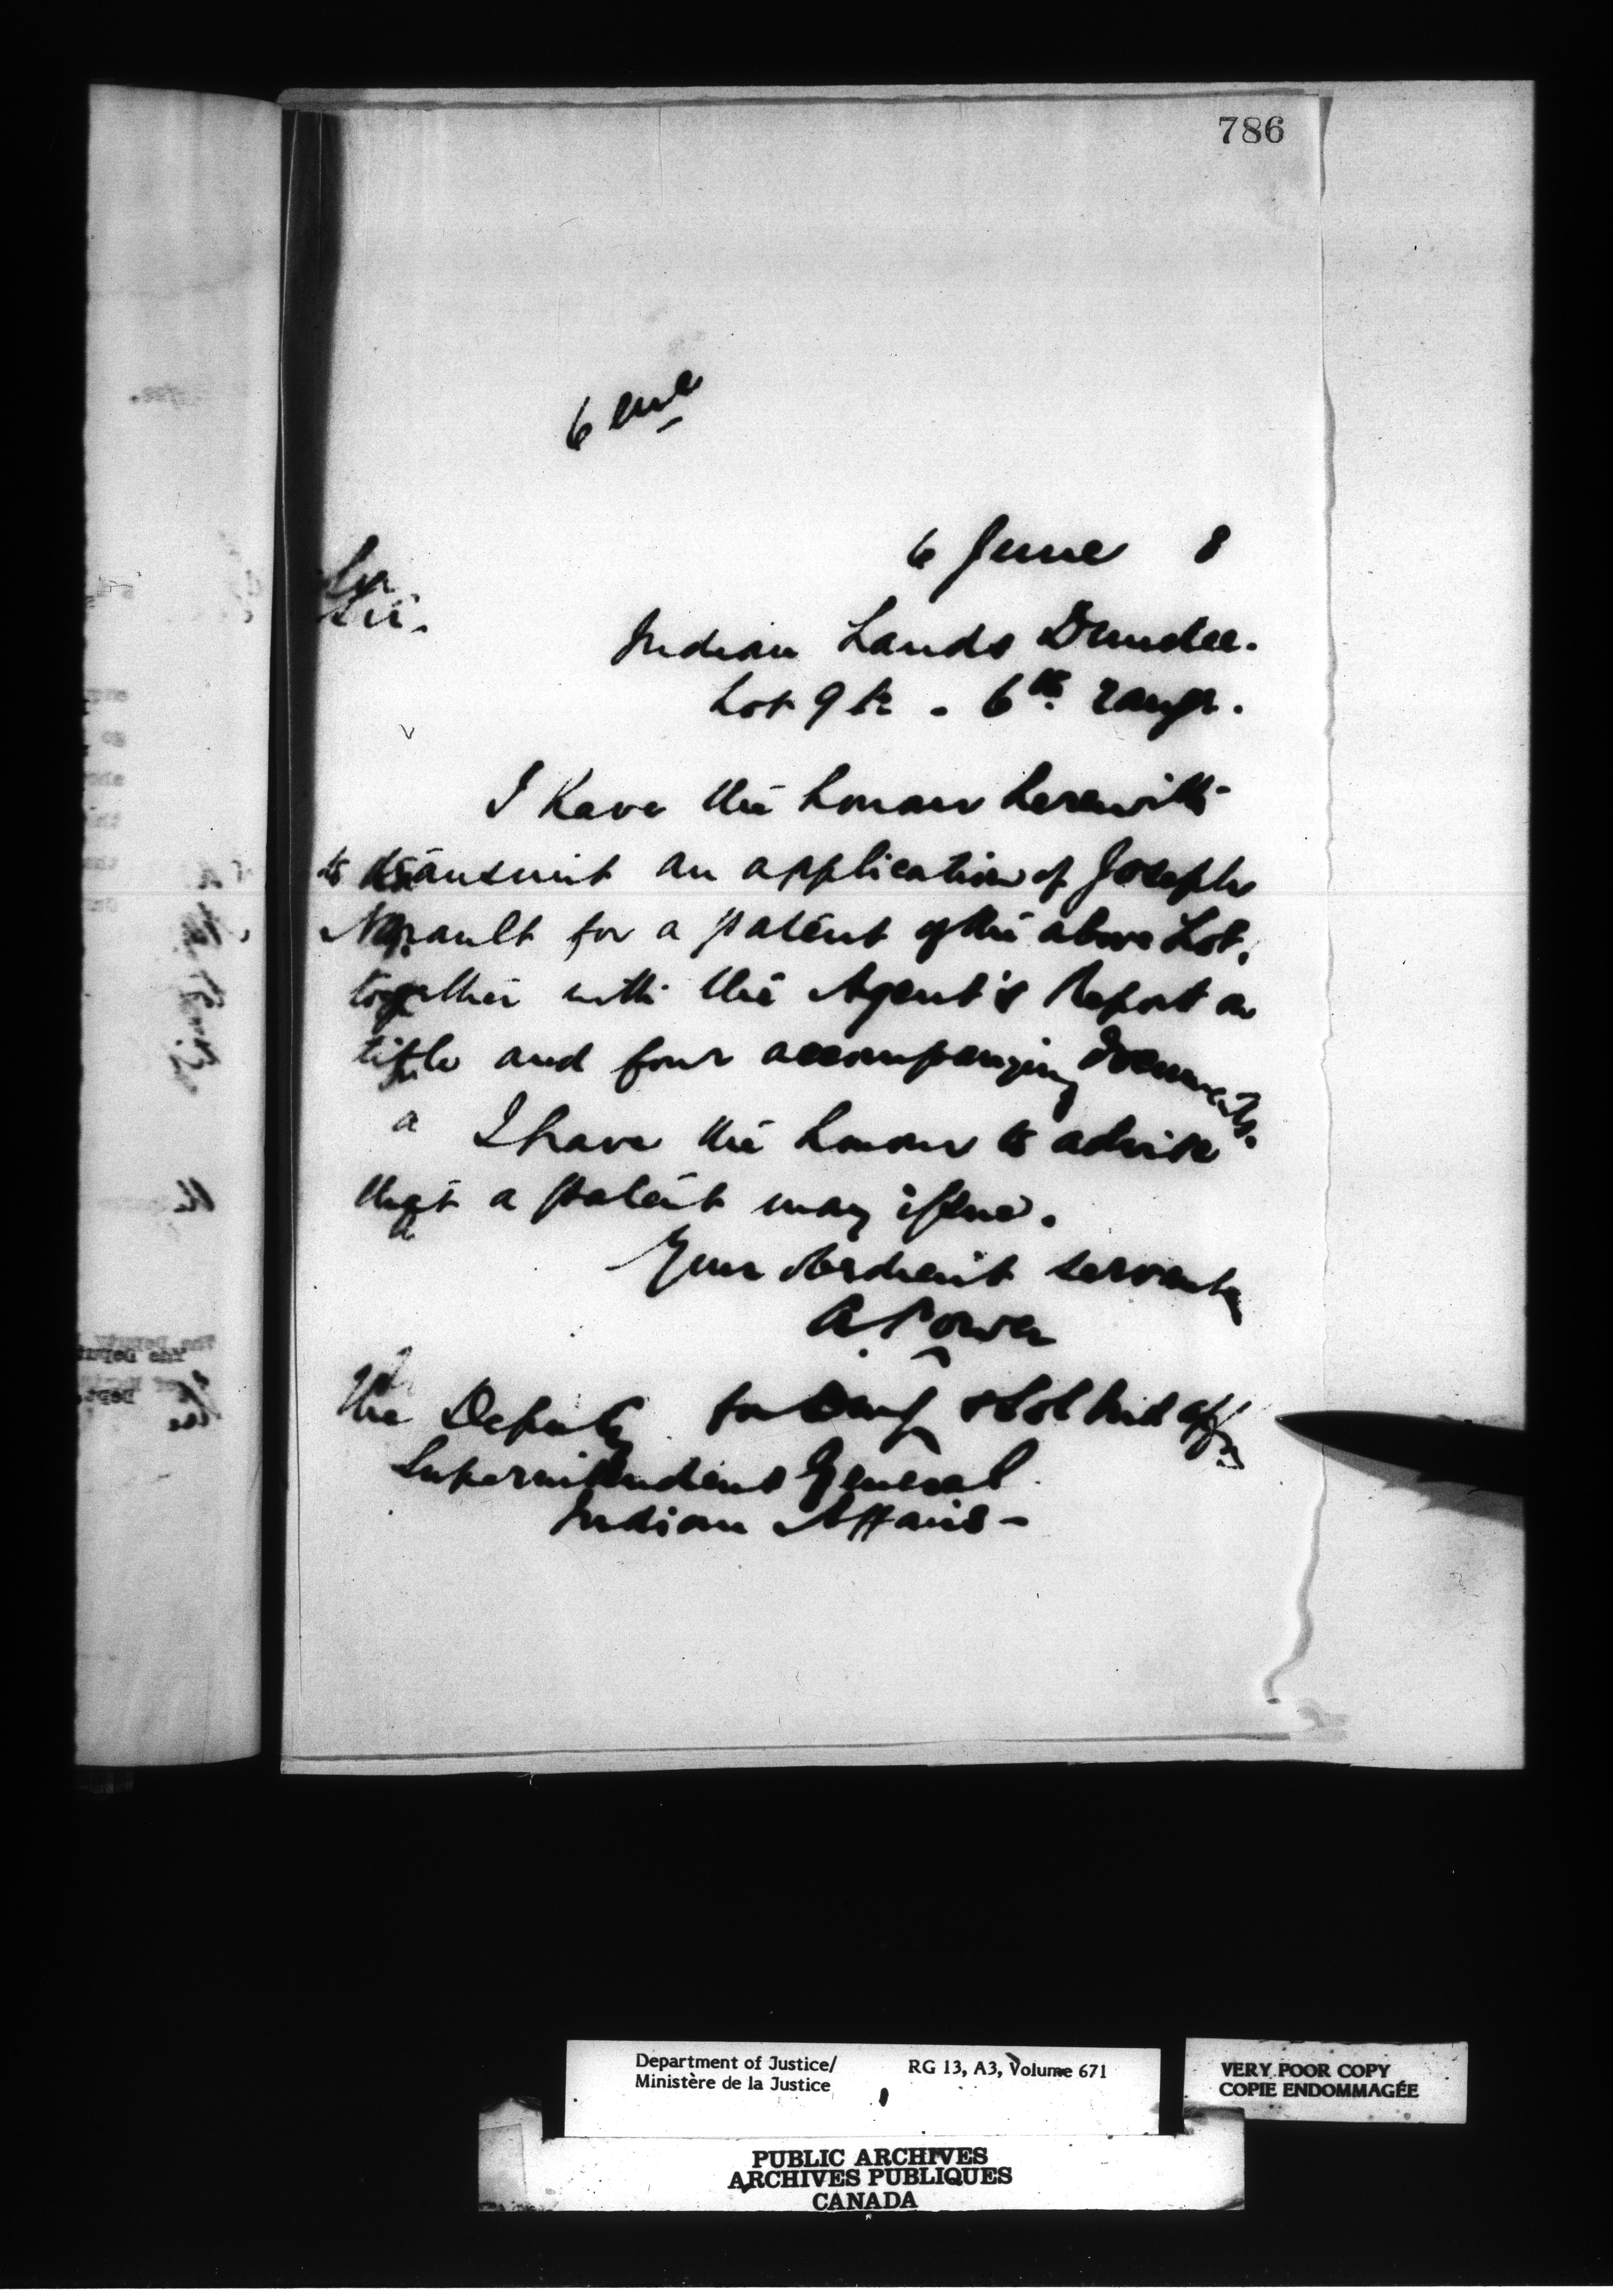 786
6 encl
6 June 8
Sir.
Indian Lands Dundee.
Lot 9 - 6th range.
I have the honour herewith
to transmit an application of Joseph
for a patent of the above Lot,
together with the Agent's Report on
title and four accompanying documents.
I have the honour to advise
that a patent may issue.
Your obedient servant
A Power
for
The Deputy
Superintendent General
Indian Affairs -
Department of Justice/
Ministère de la Justice
RG 13, A3, Volume 671
VERY POOR COPY
COPIE ENDOMMAGÉE
PUBLIC ARCHIVES
ARCHIVES PUBLIQUES
CANADA